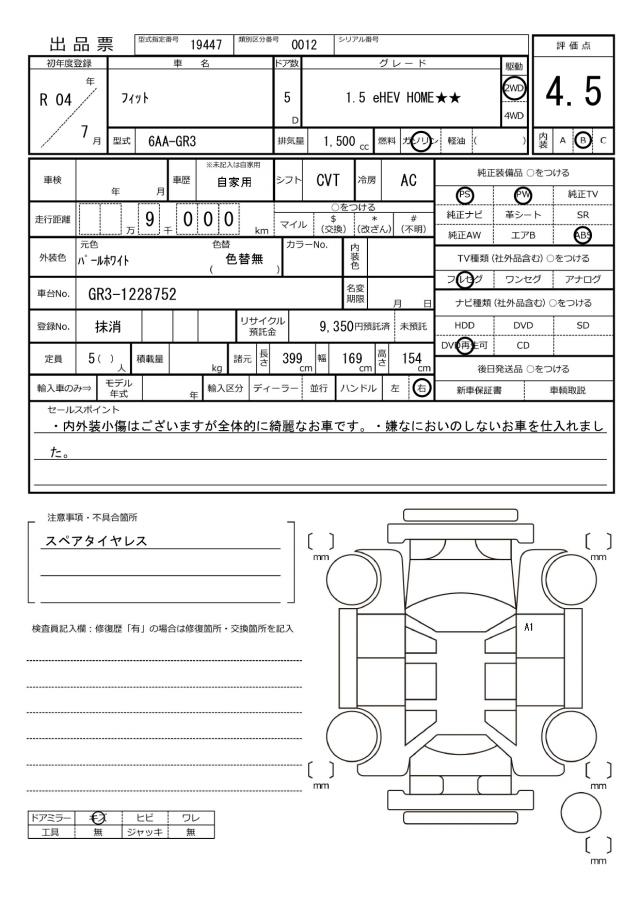 出品票 型式指定番号 19447 類別区分番号 0012 シリアル番号
評価点
4.5
内装 A B C
初年度登録 車名 ドア数 グレード 駆動
R 04 年 7 月 フィット 5 D 1.5 eHEV HOME★★ 2WD 4WD
型式 6AA-GR3 排気量 1,500 cc 燃料 ガソリン 軽油 ( )
車検 年 月 車歴 ※未記入は自家用 自家用 シフト CVT 冷房 AC
走行距離 万 9 千 0 0 0 km
○をつける
マイル $(交換) *(改ざん) #(不明)
外装色 元色 パールホワイト 色替 ( 色替無 ) カラーNo. 内装色
車台No. GR3-1228752 名変期限 月 日
登録No. 抹消 リサイクル預託金 9,350円預託済 未預託
定員 5 ( ) 人 積載量 kg 諸元 長さ 399 cm 幅 169 cm 高さ 154 cm
輸入車のみ⇒ モデル年式 年 輸入区分 ディーラー 並行 ハンドル 左 右
純正装備品 ○をつける
PS PW 純正TV
純正ナビ 革シート SR
純正AW エアB ABS
TV種類(社外品含む)○をつける
フルセグ ワンセグ アナログ
ナビ種類(社外品含む)○をつける
HDD DVD SD
DVD再生可 CD
後日発送品 ○をつける
新車保証書 車輌取説
セールスポイント
・内外装小傷はございますが全体的に綺麗なお車です。・嫌なにおいのしないお車を仕入れまし
た。
注意事項・不具合箇所
スペアタイヤレス
検査員記入欄：修復歴「有」の場合は修復箇所・交換箇所を記入
〔 〕mm 〔 〕mm
A1
〔 〕mm 〔 〕mm
〔 〕mm
ドアミラー キズ ヒビ ワレ
工具 無 ジャッキ 無